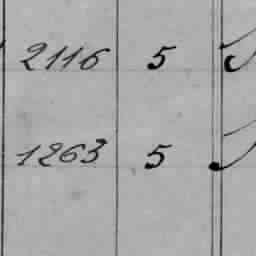 2116 5
1263 5